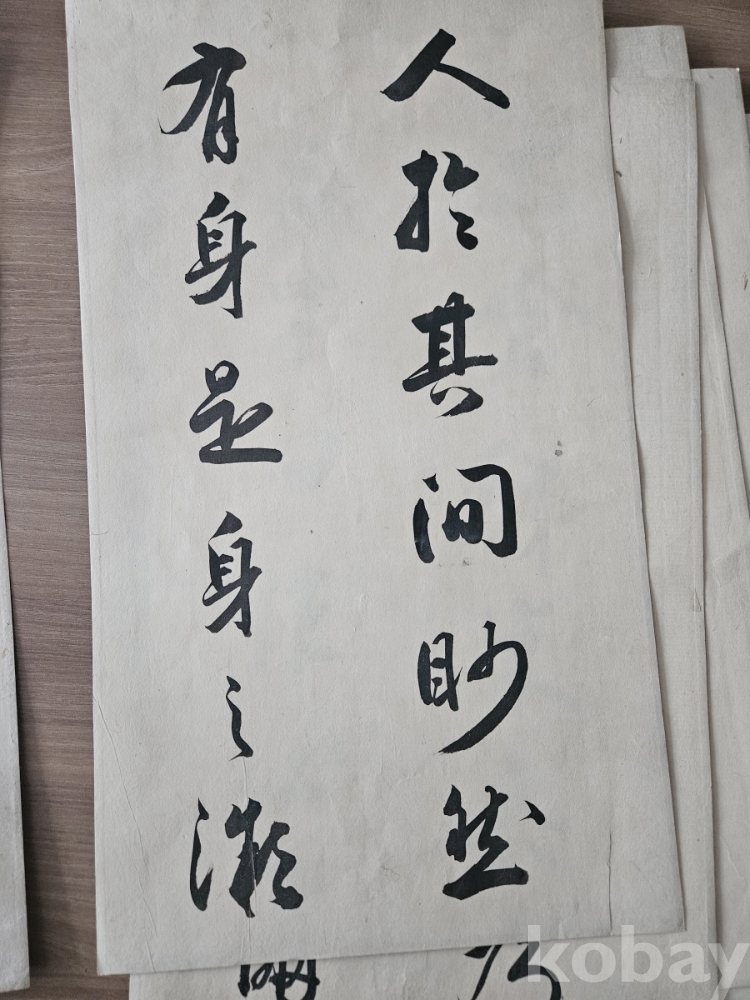 人於其間眇然
有身是身之微
kobay